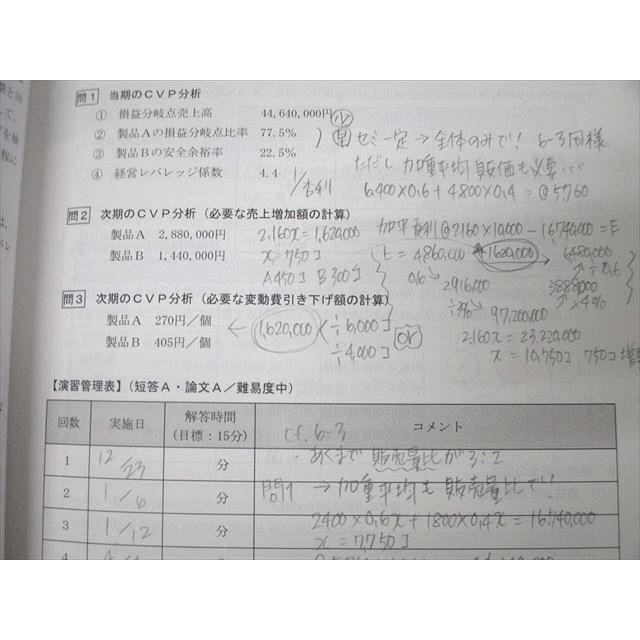 問1 当期のCVP分析
① 損益分岐点売上高 44,640,000円
② 製品Aの損益分岐点比率 77.5%
③ 製品Bの安全余裕率 22.5%
④ 経営レバレッジ係数 4.4
セミ一定→全体のみで! 6-3同様
ただし 加重平均 販価も必要…
6,400×0.6+4800×0.4=@5760
問2 次期のCVP分析(必要な売上増加額の計算)
製品A 2,880,000円
製品B 1,440,000円
2,160x=1,620,000
x=750コ
A450コ B300コ
@2160×10,000-16,740,000=E
E=4860,000
1620,000
6480,000
÷0.6
0.6
2916,000
3888,000
97,200,000
2,160x=23,220,000
x=10,750コ 750コ増
問3 次期のCVP分析(必要な変動費引き下げ額の計算)
製品A 270円/個
製品B 405円/個
←1,620,000
÷6,000コ
or
÷4,000コ
【演習管理表】(短答A・論文A/難易度中)
回数 実施日 解答時間(目標:15分) コメント
cf. 6-3
1 12/23 分 -あくまで販売量比が3:2
2 1/6 分 問1→加重平均も販売量比で!
3 1/12 分 2400×0.6x+1800×0.4x=16,740,000
x=7,750コ
4